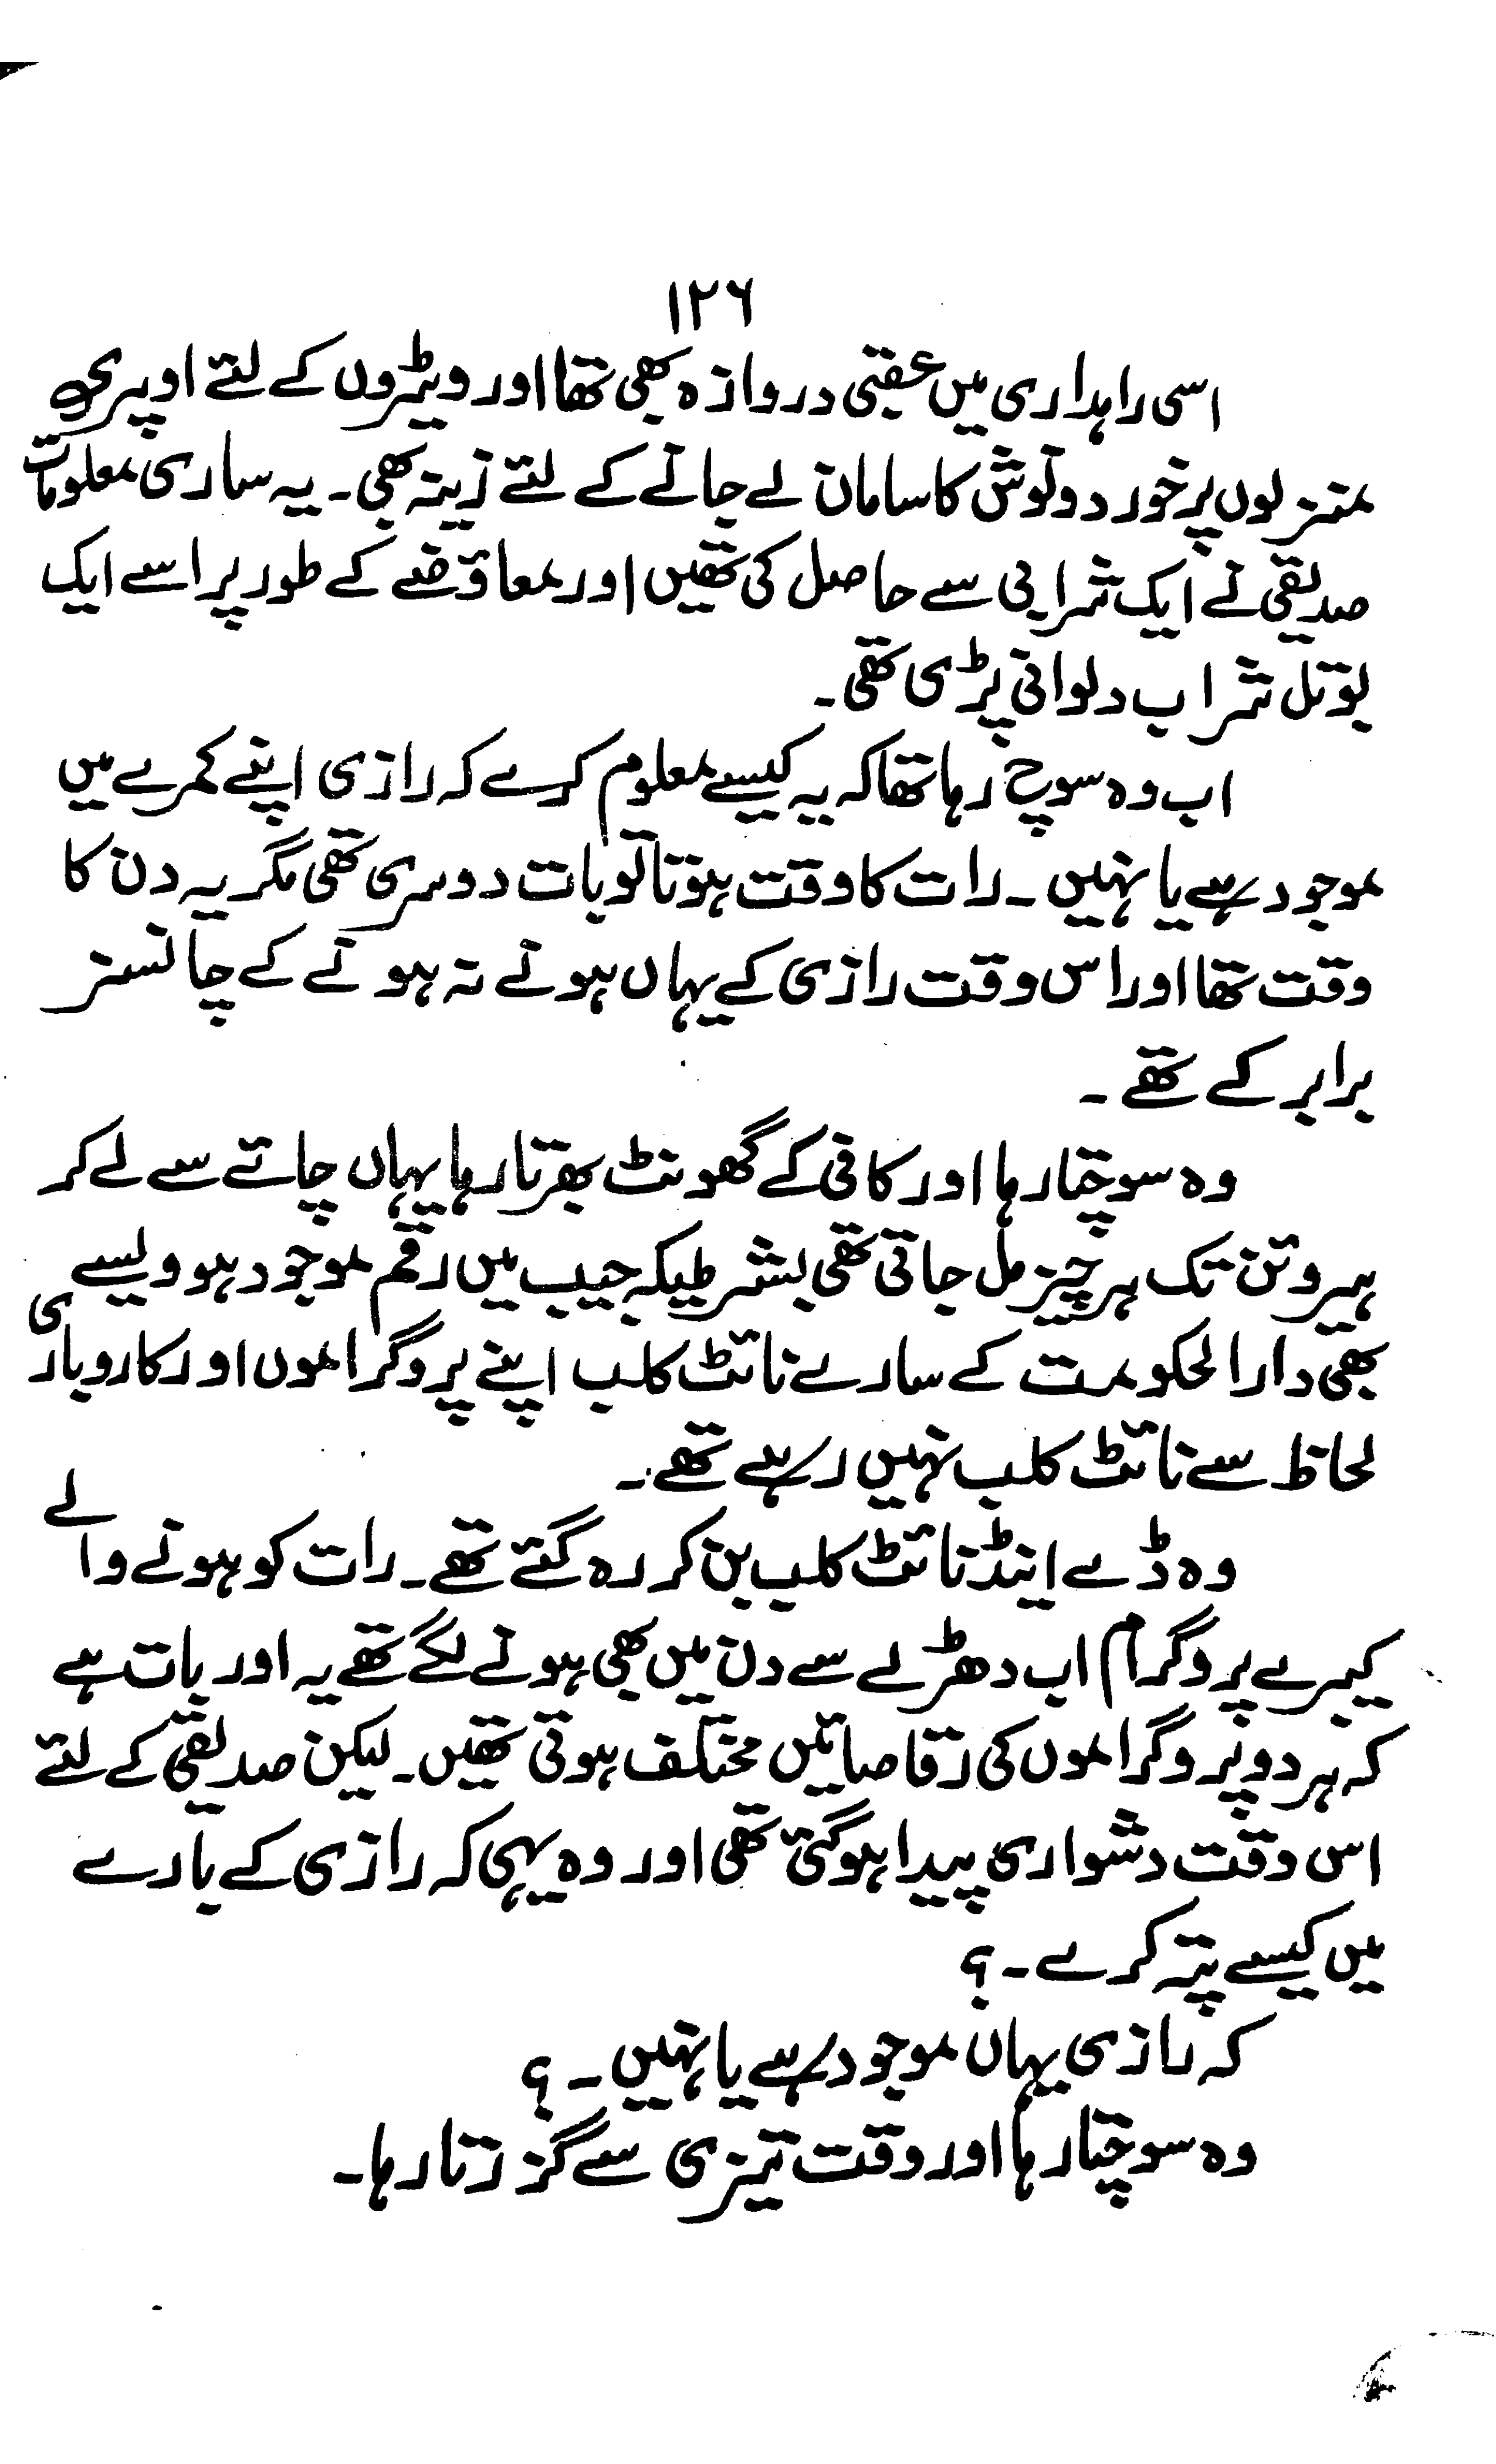 ۱۲۶
اسی راہداری میں عقبی دروازہ بھی تھا اور ویٹروں کے لئے اوپری
منزلوں پر خورد و نوش کا سامان لے جانے کے لئے زینہ بھی ۔ یہ ساری معلومات
صدیقی نے ایک شرابی سے حاصل کی تھیں اور معاوضے کے طور پر اسے ایک
بوتل شراب دلوانی پڑی تھی ۔
اب وہ سوچ رہا تھا کہ یہ کیسے معلوم کرے کہ رازی اپنے کمرے میں
موجود ہے یا نہیں ۔ رات کا وقت ہوتا تو بات دوسری تھی مگر یہ دن کا
وقت تھا اور اس وقت رازی کے یہاں ہونے نہ ہونے کے چانسنز
برابر کے تھے ۔
وہ سوچتا رہا اور کافی کے گھونٹ بھرتا رہا یہاں چائے سے لے کر
ہیروئن تک ہر چیز مل جاتی تھی بشرطیکہ جیب میں رقم موجود ہو ویسے
بھی دارالحکومت کے سارے نائٹ کلب اپنے پروگراموں اور کاروباری
لحاظ سے نائٹ کلب نہیں رہے تھے ۔
وہ ڈے اینڈ نائٹ کلب بن کر رہ گئے تھے ۔ رات کو ہونے والے
کیبرے پروگرام اب دھڑلے سے دن میں بھی ہونے لگے تھے یہ اور بات ہے
کہ ہر دو پروگراموں کی رقاصائیں مختلف ہوتی تھیں ۔ لیکن صدیقی کے لئے
اس وقت دشواری پیدا ہوگئی تھی اور وہ یہی کہ رازی کے بارے
میں کیسے پتہ کرے ۔ ؟
کہ رازی یہاں موجود ہے یا نہیں ۔ ؟
وہ سوچتا رہا اور وقت تیزی سے گزرتا رہا ۔